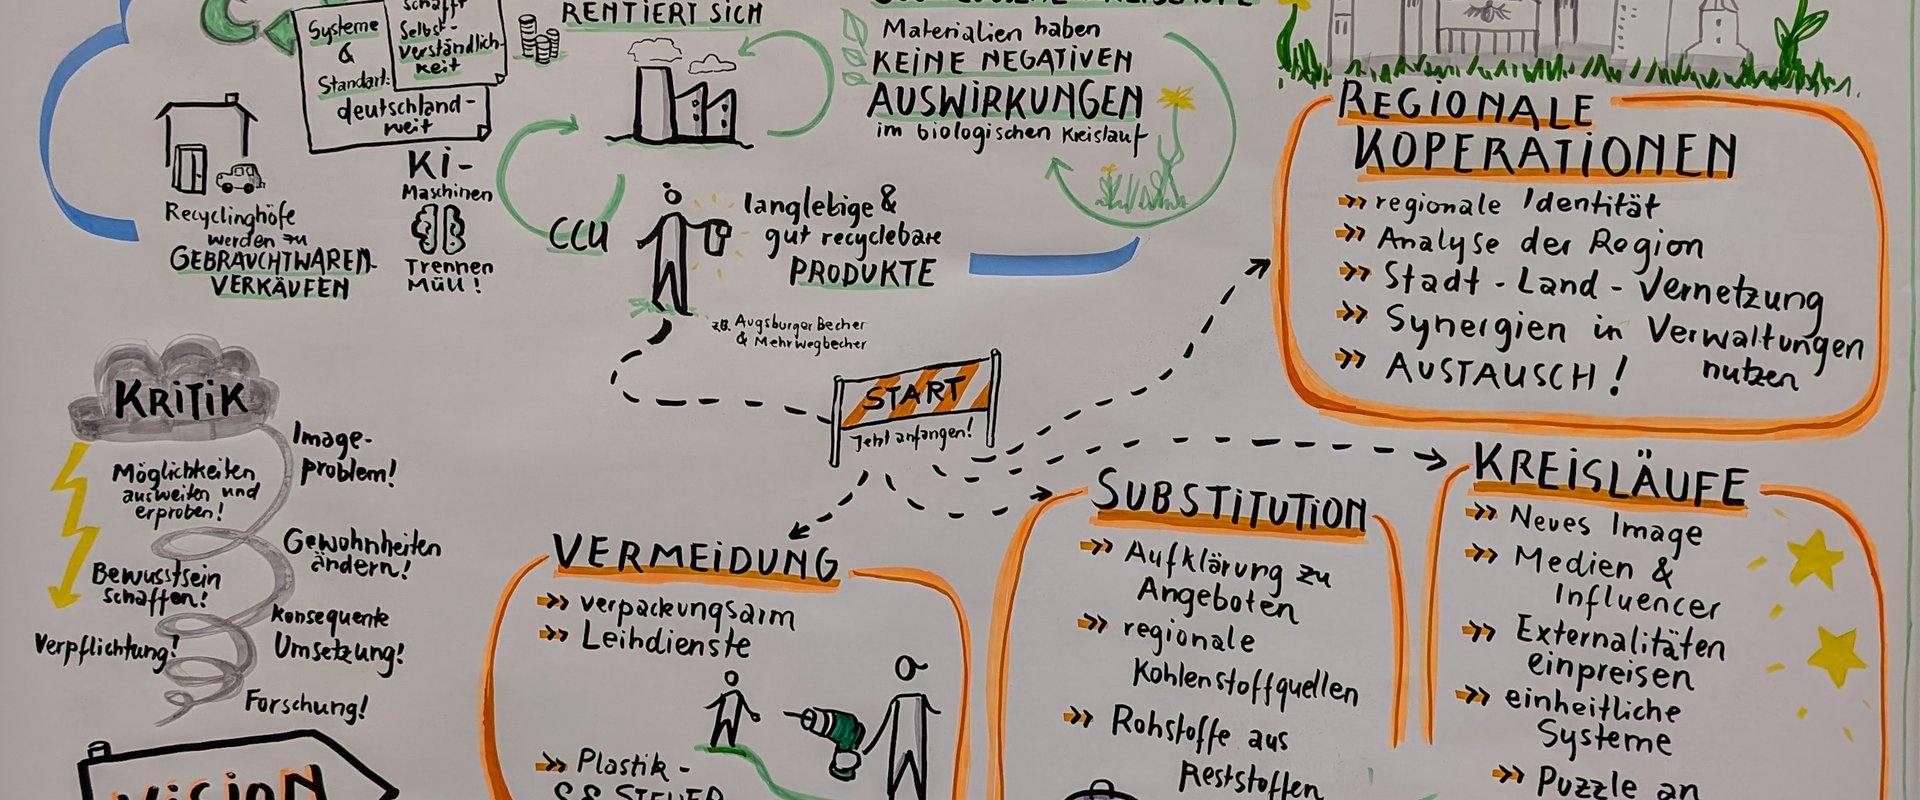 schafft
Selbst-
verständlich-
keit
Systeme
&
Standart:
deutschland-
weit
RENTIERT SICH
Materialien haben
KEINE NEGATIVEN
AUSWIRKUNGEN
im biologischen Kreislauf
Recyclinghöfe
werden zu
GEBRAUCHTWAREN-
VERKÄUFEN
KI-
Maschinen
Trennen
Müll!
CCU
langlebige &
gut recyclebare
PRODUKTE
z.B. Augsburger Becher
& Mehrwegbecher
START
Jetzt anfangen!
REGIONALE
KOPERATIONEN
regionale Identität
Analyse der Region
Stadt-Land-Vernetzung
Synergien in Verwaltungen
nutzen
AUSTAUSCH!
KRITIK
Image-
problem!
Möglichkeiten
ausweiten und
erproben!
Gewohnheiten
ändern!
Bewusstsein
schaffen!
Konsequente
Umsetzung!
Verpflichtung!
Forschung!
VISION
VERMEIDUNG
verpackungsarm
Leihdienste
Plastik-
STEUER
SUBSTITUTION
Aufklärung zu
Angeboten
regionale
Kohlenstoffquellen
Rohstoffe aus
Reststoffen
KREISLÄUFE
Neues Image
Medien &
Influencer
Externalitäten
einpreisen
einheitliche
Systeme
Puzzle an